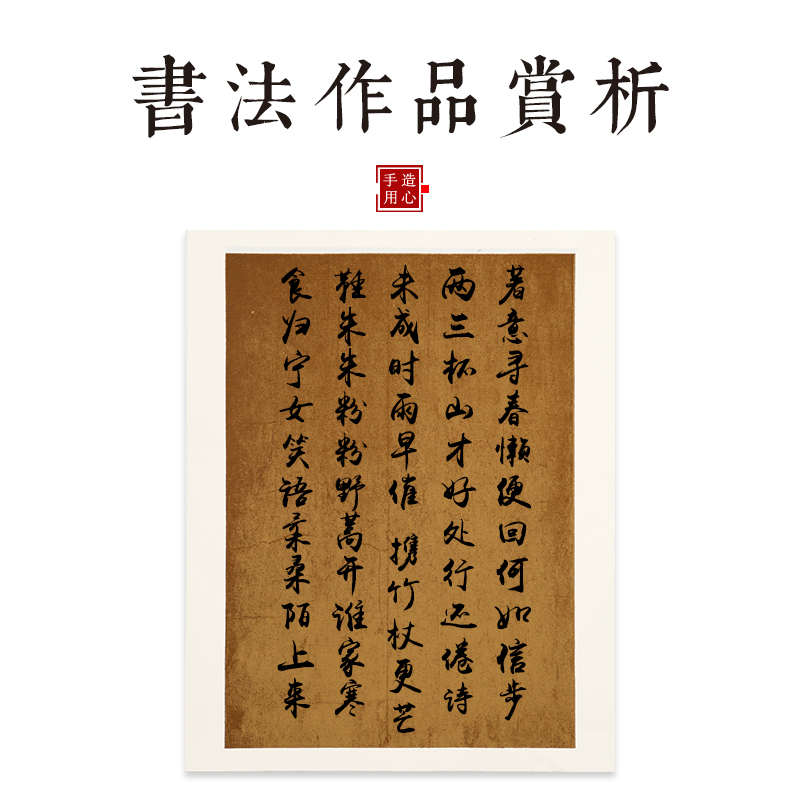 書法作品賞析
手造
用心
著意寻春懒便回何如信步
两三杯山才好处行还倦诗
未成时雨早催 携竹杖更芒
鞋朱朱粉粉野蒿开谁家寒
食归宁女笑语柔桑陌上来